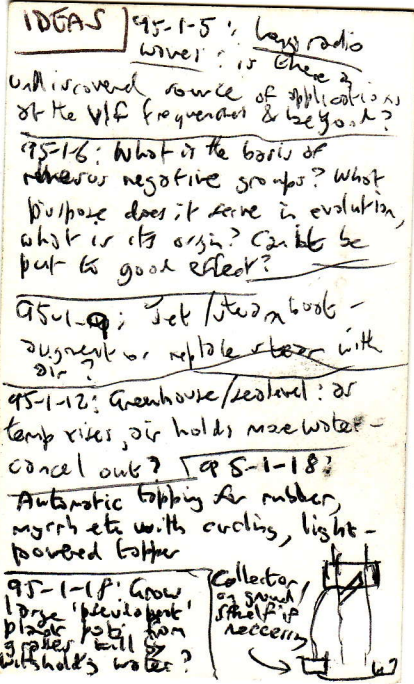 IDEAS
95-1-5: Long radio
waves: is there a
undiscovered source of applications
at the Vlf frequencies & beyond?
95-1-6: What is the basis of
rhesus negative groups? What
purpose does it serve in evolution,
what is its origin? Can it be
put to good effect?
95-1-9: Jet/steam boat -
augment or replace steam with
air?
95-1-12: Greenhouse/sealevel: as
temp rises, air holds more water -
cancel out?
95-1-18:
Automatic tapping for rubber,
myrrh etc with circling, light-
powered tapper
95-1-18: Grow
large
plant from
grasses
withholds water?
Collector,
on ground/
shelf if
necessary